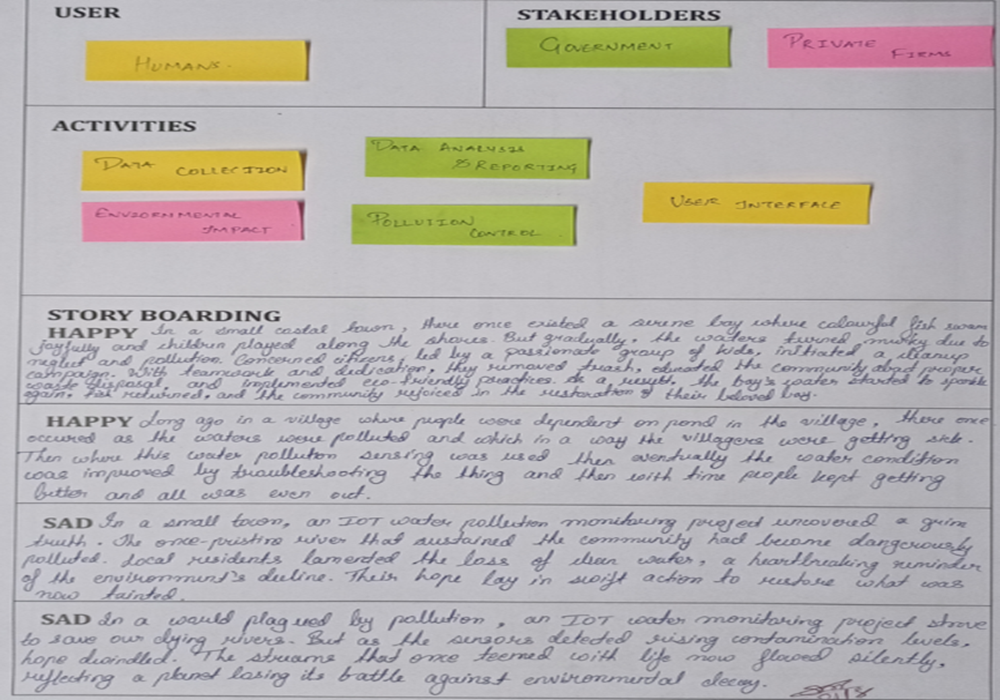 USER
HUMANS.
STAKEHOLDERS
GOVERNMENT
PRIVATE
FIRMS
ACTIVITIES
DATA
COLLECTION
DATA ANALYSIS
& REPORTING
USER INTERFACE
ENVIORNMENTAL
IMPACT
POLLUTION
CONTROL
STORY BOARDING
HAPPY In a small costal town, there once existed a serene bay where colourful fish swam
joyfully and children played along the shores. But gradually, the waters turned murky due to
neglect and pollution. Concerned citizens, led by a passionate group of kids, initiated a cleanup
campaign. With teamwork and dedication, they removed trash, educated the community about proper
waste disposal, and implemented eco-friendly practices. As a result, the bay's water started to sparkle
again, fish returned, and the community rejoiced in the restoration of their beloved bay.
HAPPY Long ago in a village where people were dependent on pond in the village, there once
occured as the waters were polluted and which in a way the villagers were getting sick.
Then where this water pollution sensing was used then eventually the water condition
was improved by troubleshooting the thing and then with time people kept getting
better and all was even out.
SAD In a small town, an IOT water pollution monitoring project uncovered a grim
truth. The once-pristine river that sustained the community had become dangerously
polluted. Local residents lamented the loss of clean water, a heartbreaking reminder
of the environment's decline. Their hope lay in swift action to restore what was
now tainted.
SAD In a world plagued by pollution, an IOT water monitoring project strove
to save our dying rivers. But as the sensors detected rising contamination levels,
hope dwindled. The streams that once teemed with life now flowed silently,
reflecting a planet losing its battle against environmental decay.